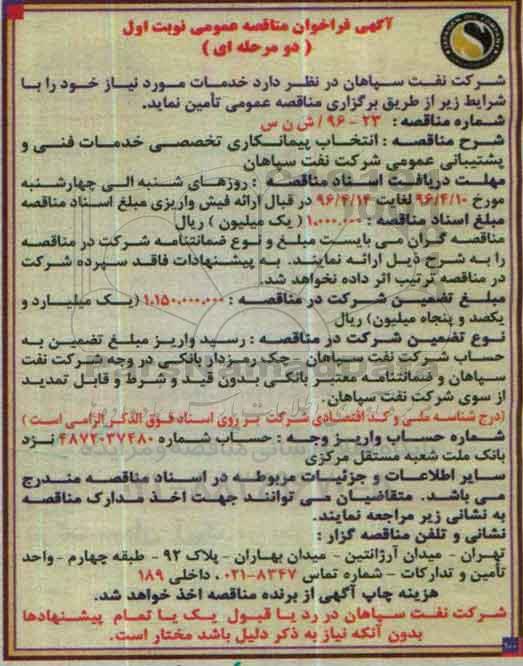 آگهی فراخوان مناقصه عمومی نوبت اول
( دو مرحله ای )
شرکت نفت سپاهان در نظر دارد خدمات مورد نیاز خود را با
شرایط زیر از طریق برگزاری مناقصه عمومی تأمین نماید.
شماره مناقصه : ۲۳ - ۹۶ / ش ن س
شرح مناقصه : انتخاب پیمانکاری تخصصی خدمات فنی و
پشتیبانی عمومی شرکت نفت سپاهان
مهلت دریافت اسناد مناقصه : روزهای شنبه الی چهارشنبه
مورخ ۹۶/۴/۱۰ لغایت ۹۶/۴/۱۴ در قبال ارائه فیش واریزی مبلغ اسناد مناقصه
مبلغ اسناد مناقصه : ۱.۰۰۰.۰۰۰ ( یک میلیون ) ریال
مناقصه گران می بایست مبلغ و نوع ضمانتنامه شرکت در مناقصه
را به شرح ذیل ارائه نمایند. به پیشنهادات فاقد سپرده شرکت
در مناقصه ترتیب اثر داده نخواهد شد.
مبلغ تضمین شرکت در مناقصه : ۱.۱۵۰.۰۰۰.۰۰۰ (یک میلیارد و
یکصد و پنجاه میلیون) ریال
نوع تضمین شرکت در مناقصه : رسید واریز مبلغ تضمین به
حساب شرکت نفت سپاهان - چک رمزدار بانکی در وجه شرکت نفت
سپاهان و ضمانتنامه معتبر بانکی بدون قید و شرط و قابل تمدید
از سوی شرکت نفت سپاهان.
(درج شناسه ملی و کد اقتصادی شرکت بر روی اسناد فوق الذکر الزامی است )
شماره حساب واریز وجه : حساب شماره ۴۸۷۲۰۳۷۴۸۰ نزد
بانک ملت شعبه مستقل مرکزی
سایر اطلاعات و جزئیات مربوطه در اسناد مناقصه مندرج
می باشد. متقاضیان می توانند جهت اخذ مدارک مناقصه
به نشانی زیر مراجعه نمایند.
نشانی و تلفن مناقصه گزار :
تهران - میدان آرژانتین - میدان بهاران - پلاک ۹۲ - طبقه چهارم - واحد
تأمین و تدارکات - شماره تماس ۸۳۴۷-۰۲۱ ، داخلی ۱۸۹
هزینه چاپ آگهی از برنده مناقصه اخذ خواهد شد.
شرکت نفت سپاهان در رد یا قبول یک یا تمام پیشنهادها
بدون آنکه نیاز به ذکر دلیل باشد مختار است.